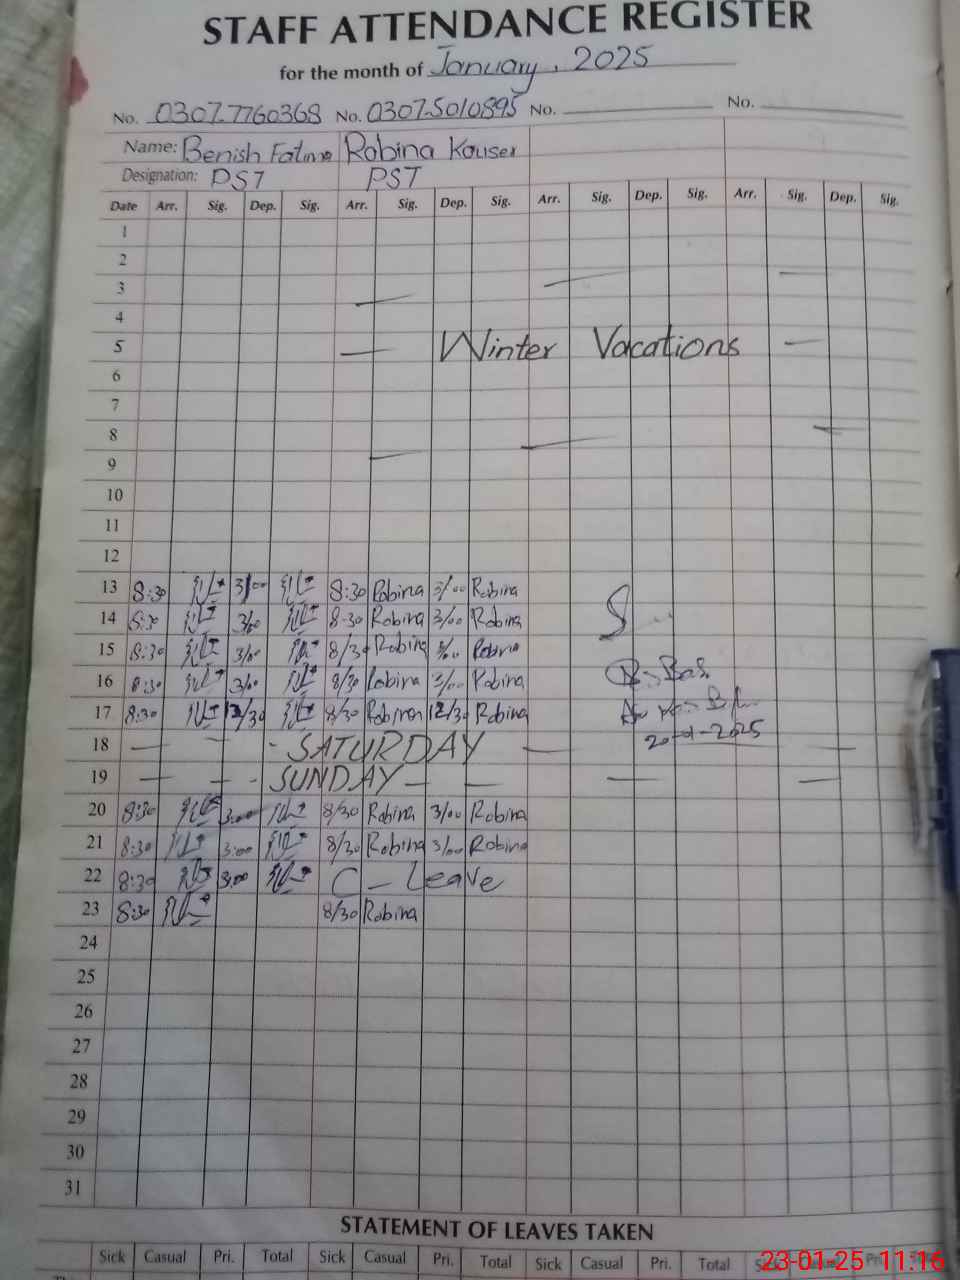 STAFF ATTENDANCE REGISTER
for the month of January, 2025
No. 0307-7760368 No. 0307-5010895 No. No.
Name: Benish Fatima Robina Kouser
Designation: PST PST
Date Arr. Sig. Dep. Sig. Arr. Sig. Dep. Sig. Arr. Sig. Dep. Sig. Arr. Sig. Dep. Sig.
1
2
3
4
5 Winter Vacations
6
7
8
9
10
11
12
13 8:30 3/00 8:30 Robina 3/00 Robina
14 8:30 3/00 8-30 Robina 3/00 Robina
15 8:30 3/00 8/30 Robina 3/00 Robina
16 8:30 3/00 8/30 Robina 3/00 Robina
17 8:30 12/30 8/30 Robina 12/30 Robina
20-1-2025
18 SATURDAY
19 SUNDAY
20 8:30 3:00 8/30 Robina 3/00 Robina
21 8:30 3:00 8/30 Robina 3/00 Robina
22 8:30 3:00 C - Leave
23 8:30 8/30 Robina
24
25
26
27
28
29
30
31
STATEMENT OF LEAVES TAKEN
Sick Casual Pri. Total Sick Casual Pri. Total Sick Casual Pri. Total Sick Casual Pri.
23-01-25 11:16